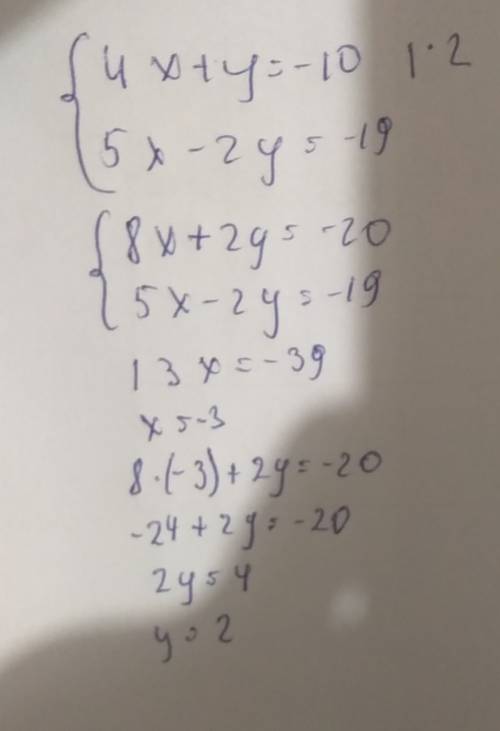 4x+y=-10 |·2
5x-2y=-19
8x+2y=-20
5x-2y=-19
13x=-39
x=-3
8·(-3)+2y=-20
-24+2y=-20
2y=4
y=2